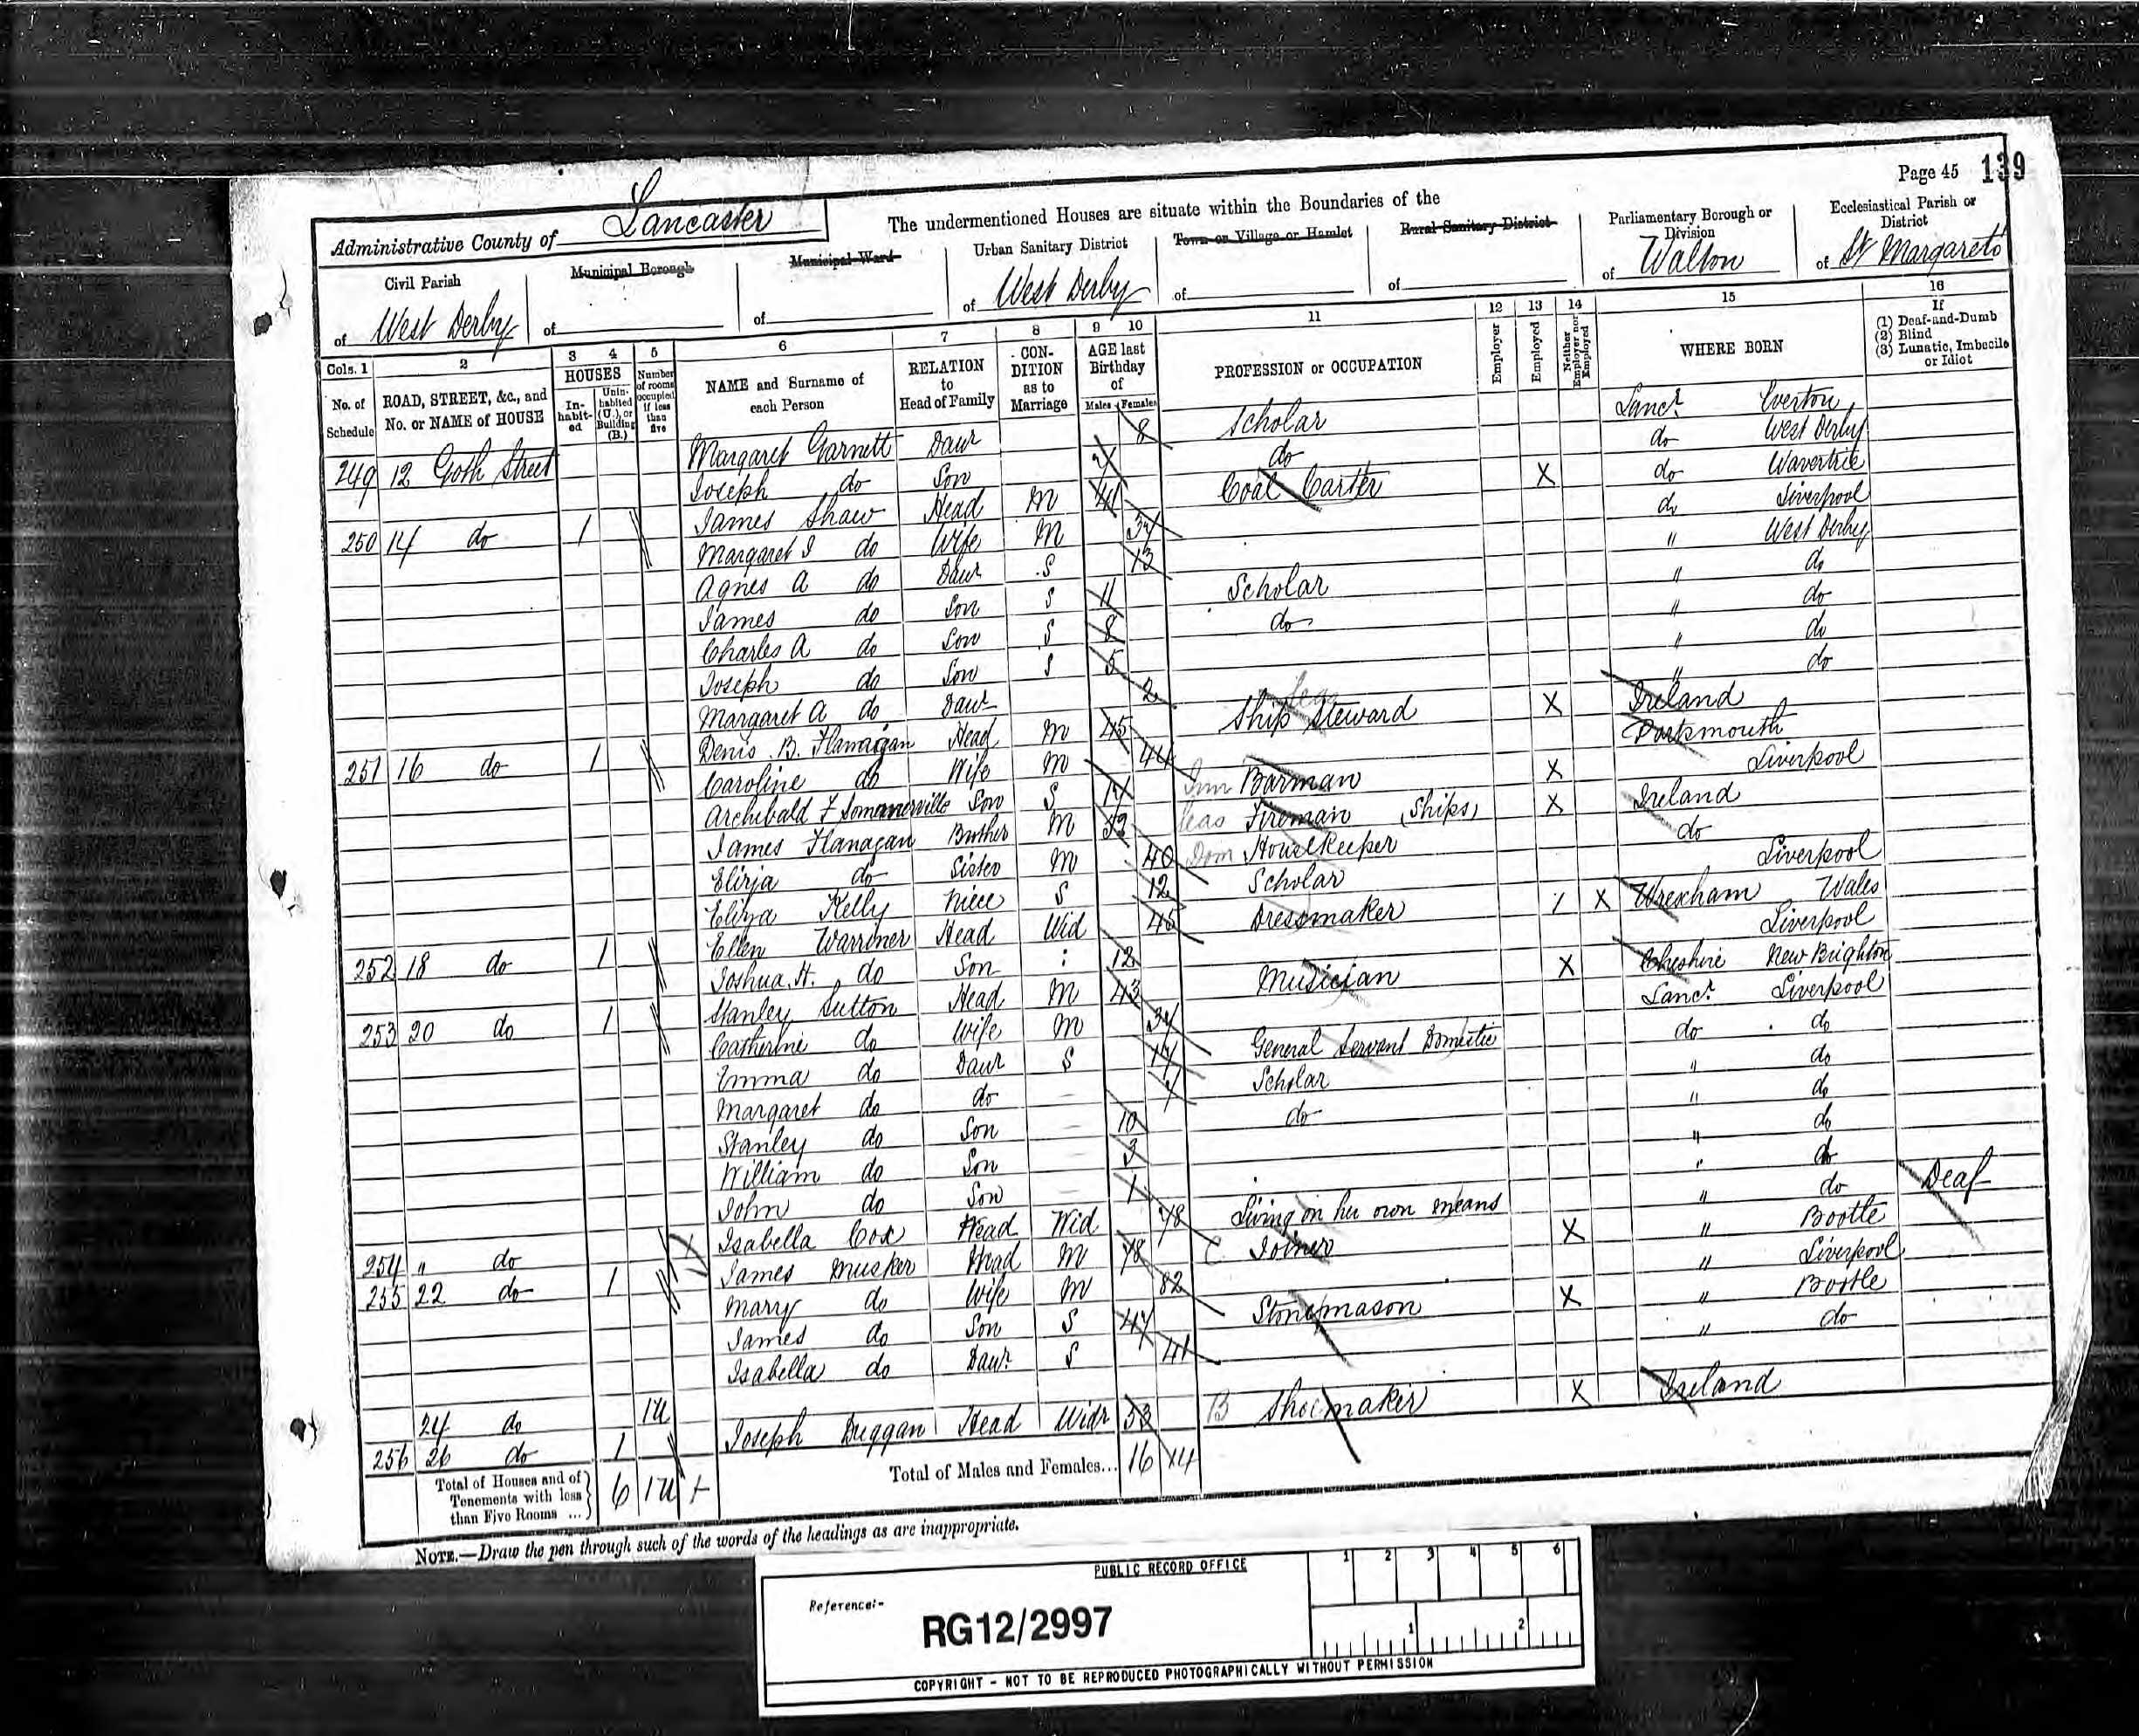 Page 45 139
Administrative County of Lancaster The undermentioned Houses are situate within the Boundaries of the
Civil Parish of West Derby
Municipal Borough of
Municipal Ward of
Urban Sanitary District of West Derby
Town or Village or Hamlet of
Rural Sanitary District of
Parliamentary Borough or Division of Walton
Ecclesiastical Parish or District of St Margarets
Cols. 1 2 3 4 5 6 7 8 9 10 11 12 13 14 15 16
No. of Schedule
ROAD, STREET, &c., and No. or NAME of HOUSE
HOUSES
In-habit-ed
Unin-habited (U.), or Building (B.)
Number of rooms occupied if less than five
NAME and Surname of each Person
RELATION to Head of Family
CON-DITION as to Marriage
AGE last Birthday of
Males Females
PROFESSION or OCCUPATION
Employer
Employed
Neither Employer nor Employed
WHERE BORN
If (1) Deaf-and-Dumb (2) Blind (3) Lunatic, Imbecile or Idiot
249 12 Goth Street Margaret Garnett Daur 8 Scholar Lancr Everton
Joseph do Son 7 do do West Derby
250 14 do 1 James Shaw Head M 41 Coal Carter X do Wavertree
Margaret J do Wife M 37 do Liverpool
Agnes A do Daur S 13 " West Derby
James do Son S 11 Scholar " do
Charles A do Son S 8 do " do
Joseph do Son S 5 " do
Margaret A do Daur 2 " do
251 16 do 1 Denis B. Flanagan Head M 45 Ship Steward Seas X Ireland
Caroline do Wife M 44 Portsmouth
Archibald F Sommerville Son S 17 Inn Barman X Liverpool
James Flanagan Brother M 52 Seas Fireman (Ships) X Ireland
Eliza do Sister M 40 Dom Housekeeper do
Eliza Kelly Niece S 12 Scholar Liverpool
252 18 do 1 Ellen Warriner Head Wid 45 Dressmaker X Wrexham Wales
Joshua H. do Son 12 Liverpool
253 20 do 1 Stanley Sutton Head M 43 Musician X Cheshire New Brighton
Catherine do Wife M 37 Lancr Liverpool
Emma do Daur S 17 General Servant Domestic do do
Margaret do do Scholar " do
Stanley do Son 10 do " do
William do Son 3 " do
John do Son 1 " do
254 " do Isabella Cox Head Wid 78 Living on her own means " do Deaf
255 22 do 1 James Musker Head M 78 C Joiner X " Bootle
Mary do Wife M 82 " Liverpool
James do Son S 47 Stonemason X " Bootle
Isabella do Daur S 41 " do
24 do 1U
256 26 do 1 Joseph Duggan Head Widr 53 B Shoemaker X Ireland
Total of Houses and of Tenements with less than Five Rooms ... 6 1U + Total of Males and Females... 16 14
NOTE.—Draw the pen through such of the words of the headings as are inappropriate.
PUBLIC RECORD OFFICE
1 2 3 4 5 6
Reference:-
RG12/2997
1 2
COPYRIGHT - NOT TO BE REPRODUCED PHOTOGRAPHICALLY WITHOUT PERMISSION